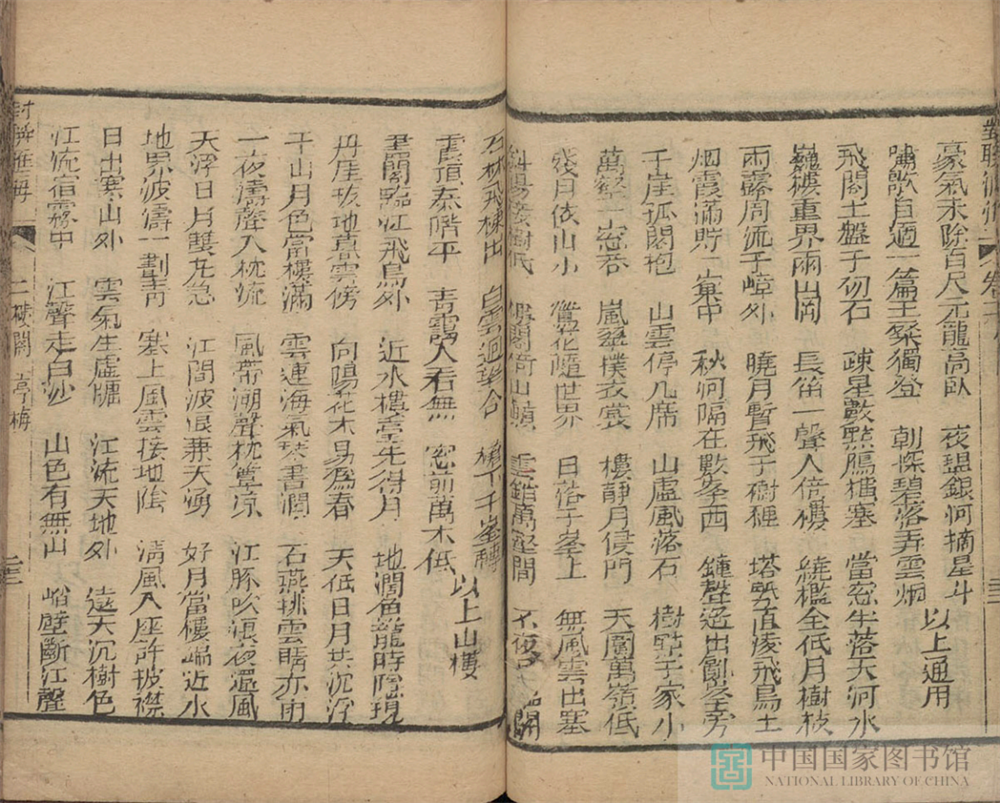 豪氣未除百尺元龍高臥 夜盥銀河摘星斗 以上通用
嘯歌自適一篇王粲獨登 朝探碧落弄雲烟
飛閣土盤千仞石 疎星數點鴈橫塞 當窓半落天河水
巍樓重界兩山岡 長笛一聲人倚樓 繞檻全低月樹枝
雨露周流千嶂外 曉月暫飛千樹裡 塔勢直凌飛鳥上
烟霞滿貯一窠中 秋河隔在數峯西 鐘聲遙出亂峯旁
千崖孤閣抱 山雲停几席 山虛風落石 樹點千家小
萬壑一窓吞 嵐翠撲衣裳 樓靜月侵門 天圍萬嶺低
殘日依山小 鶯花隨世界 日落千峯上 無風雲出塞
斜陽接樹低 樓閣倚山巔 雲銷萬壑間 不夜月臨關
石林飛棟出 白雲迴望合 樓下千峯轉 以上山樓
雲頂泰階平 青靄入看無 窓前萬木低
畫閣臨江飛鳥外 近水樓臺先得月 地濶魚龍時隱現
丹崖拔地慕雲傍 向陽花木易爲春 天低日月共沉浮
千山月色當樓滿 雲連海氣琴書潤 石燕拂雲晴亦雨
一夜濤聲入枕流 風帶潮聲枕簟凉 江豚吹浪夜還風
天浮日月雙丸急 江間波浪兼天湧 好月當樓端近水
地界波濤一劃青 塞上風雲接地陰 清風入座許披襟
日出寒山外 雲氣生虛牖 江流天地外 遠天沉樹色
江流宿霧中 江聲走白沙 山色有無山 峭壁斷江聲
二 樓閣 亭梅